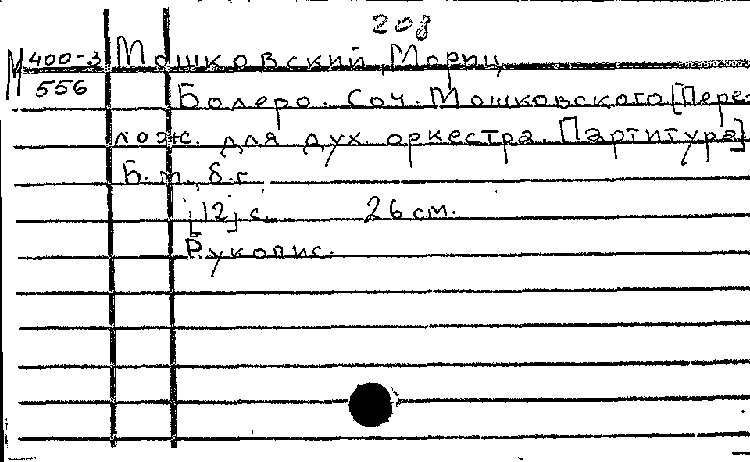 208
М 400-3 Мошковский, Мориц
556
Болеро. Соч. Мошковского [Пере-
лож. для дух. оркестра. Партитура]
Б. м., б. г.
[12] с. 26 см.
Рукопис.